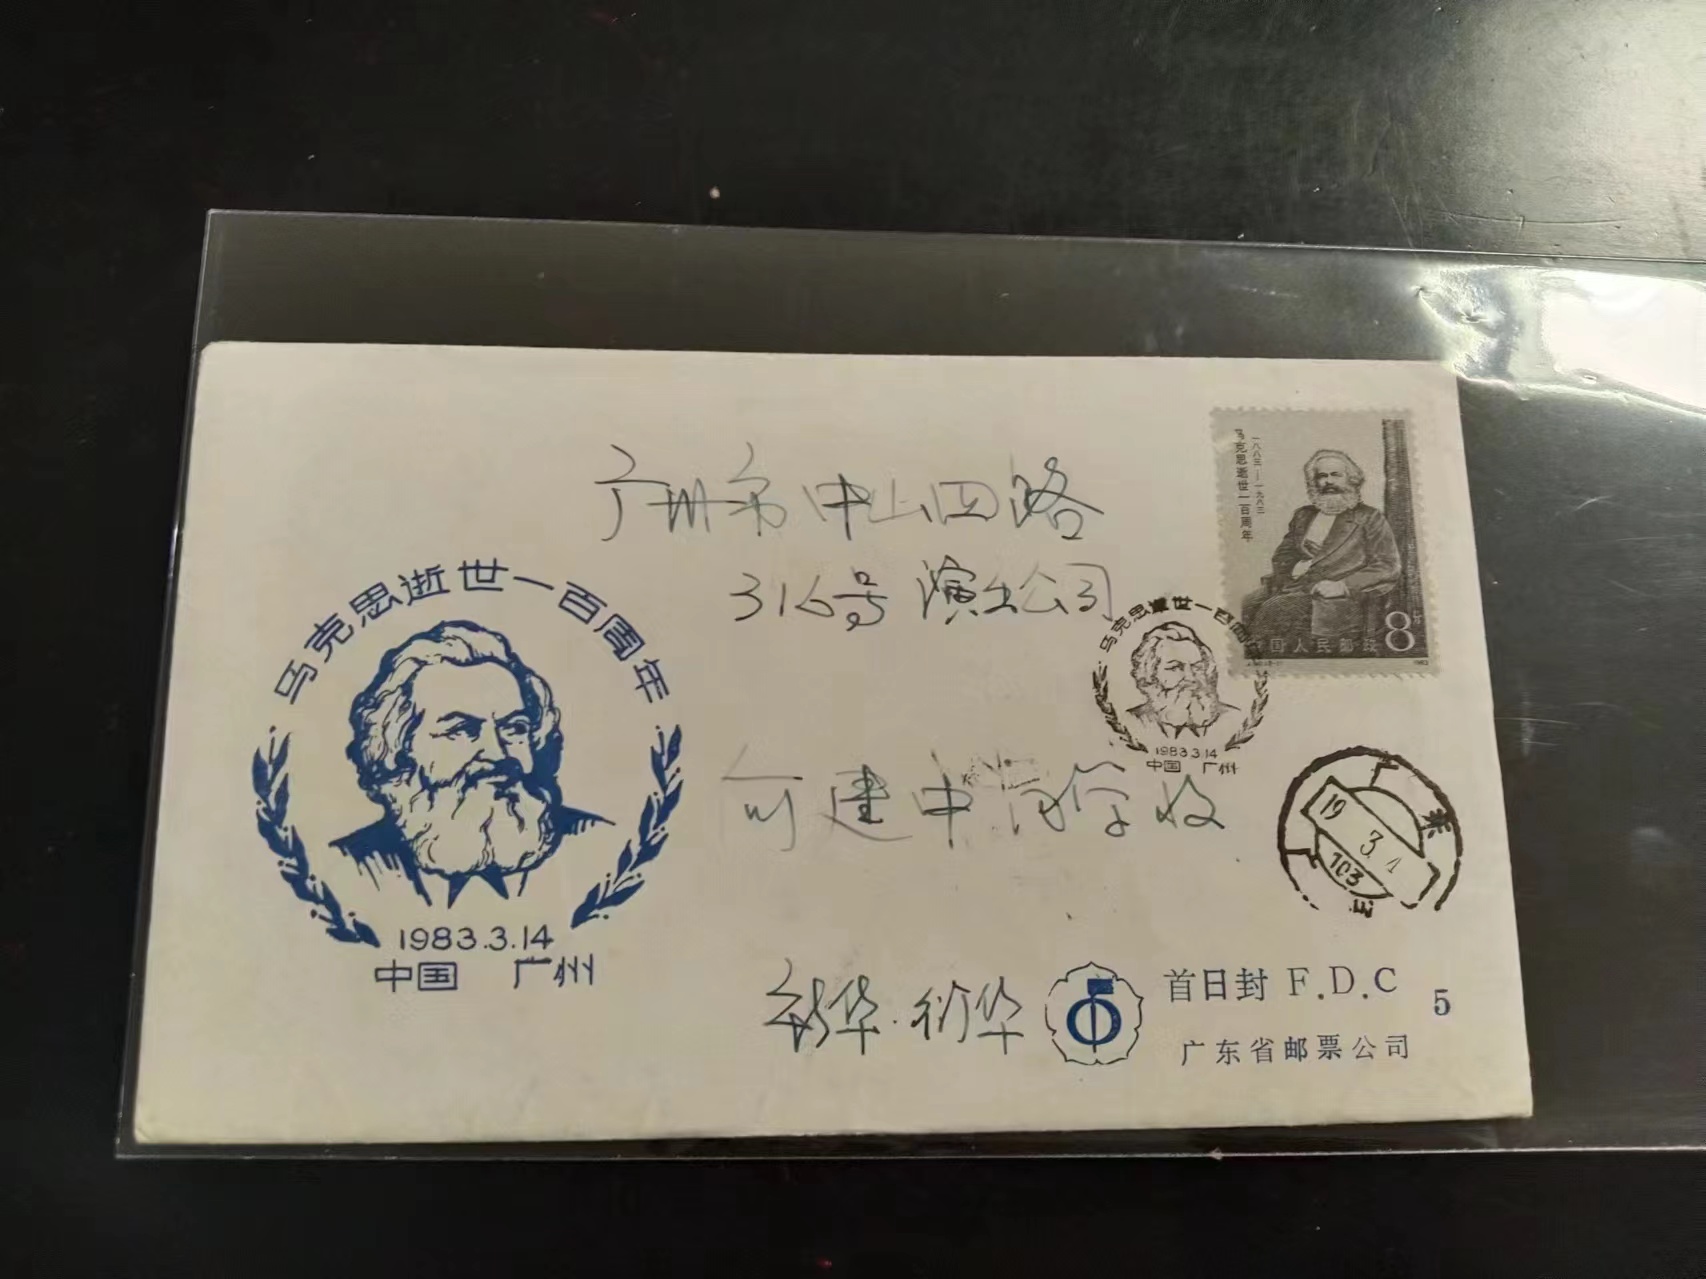 广州市中山四路
316号演出公司
马克思逝世一百周年
一八八三—一九八三
8分
中国人民邮政
1983
马克思逝世一百周年
1983.3.14
中国 广州
马克思逝世一百周
1983.3.14
中国 广州
何建中
学校
19
3.1
103
首日封 F.D.C
5
广东省邮票公司